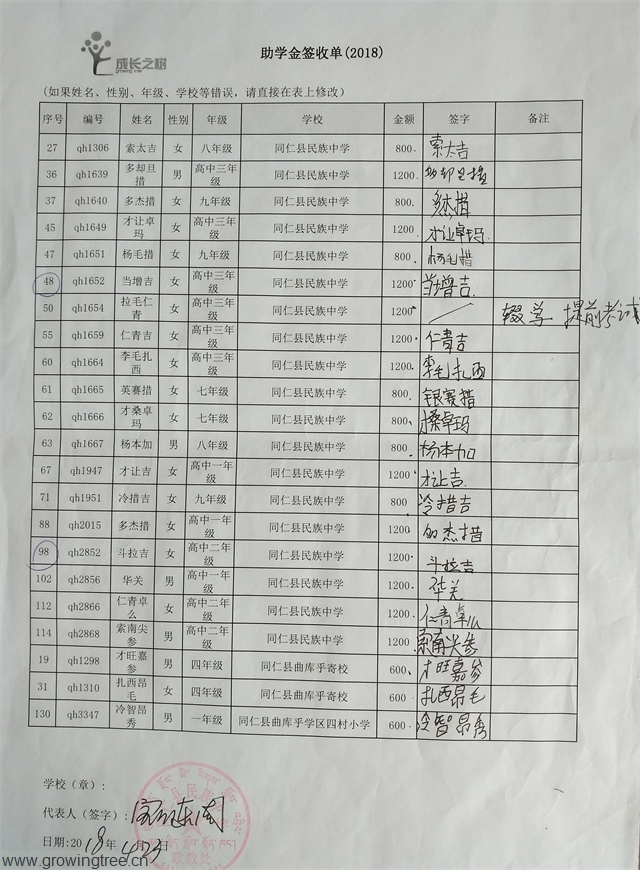 成长之树
growing tree
助学金签收单(2018)
(如果姓名、性别、年级、学校等错误，请直接在表上修改)
序号 编号 姓名 性别 年级 学校 金额 签字 备注
27 qh1306 索太吉 女 八年级 同仁县民族中学 800. 索太吉
36 qh1639 多却旦措 男 高中三年级 同仁县民族中学 1200. 多却旦措
37 qh1640 多杰措 女 九年级 同仁县民族中学 800. 多杰措
45 qh1649 才让卓玛 女 高中三年级 同仁县民族中学 1200. 才让卓玛
47 qh1651 杨毛措 女 九年级 同仁县民族中学 800. 杨毛措
48 qh1652 当增吉 女 高中三年级 同仁县民族中学 1200. 当增吉
50 qh1654 拉毛仁青 女 高中三年级 同仁县民族中学 1200 辍学 提前考试
55 qh1659 仁青吉 女 高中三年级 同仁县民族中学 1200. 仁青吉
60 qh1664 李毛扎西 男 高中三年级 同仁县民族中学 1200. 李毛扎西
61 qh1665 英赛措 女 七年级 同仁县民族中学 800. 银赛措
62 qh1666 才桑卓玛 女 七年级 同仁县民族中学 800. 才桑卓玛
63 qh1667 杨本加 男 八年级 同仁县民族中学 800. 杨本加
67 qh1947 才让吉 女 高中一年级 同仁县民族中学 1200 才让吉
71 qh1951 冷措吉 女 九年级 同仁县民族中学 800. 冷措吉
88 qh2015 多杰措 女 高中一年级 同仁县民族中学 1200. 多杰措
98 qh2852 斗拉吉 女 高中二年级 同仁县民族中学 1200. 斗拉吉
102 qh2856 华关 男 高中一年级 同仁县民族中学 1200. 华关
112 qh2866 仁青卓么 女 高中二年级 同仁县民族中学 1200. 仁青卓么
114 qh2868 索南尖参 男 高中二年级 同仁县民族中学 1200. 索南尖参
19 qh1298 才旺嘉参 男 四年级 同仁县曲库乎寄校 600. 才旺嘉参
31 qh1310 扎西昂毛 女 四年级 同仁县曲库乎寄校 600. 扎西昂毛
130 qh3347 冷智昂秀 男 一年级 同仁县曲库乎学区四村小学 600. 冷智昂秀
学校（章）:
代表人（签字）:
日期:2018年4月23日
政教处
www.growingtree.cn